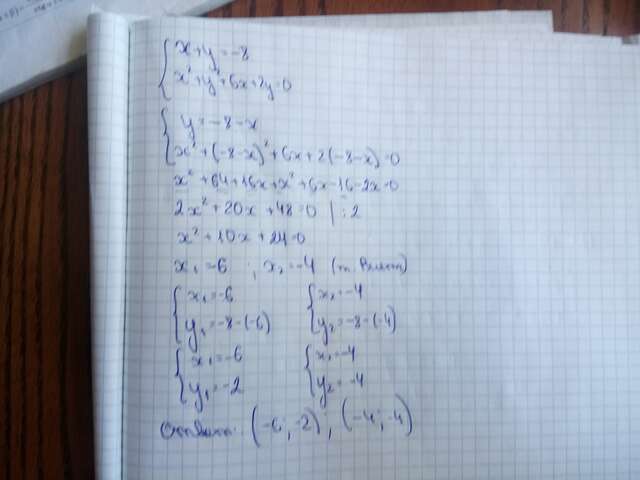 x+y=-8
x²+y²+6x+2y=0
y=-8-x
x²+(-8-x)²+6x+2(-8-x)=0
x²+64+16x+x²+6x-16-2x=0
2x²+20x+48=0 | :2
x²+10x+24=0
x₁=-6 ; x₂=-4 (т. Виета)
x₁=-6 x₂=-4
y₁=-8-(-6) y₂=-8-(-4)
x₁=-6 x₂=-4
y₁=-2 y₂=-4
Ответ: (-6; -2), (-4; -4)